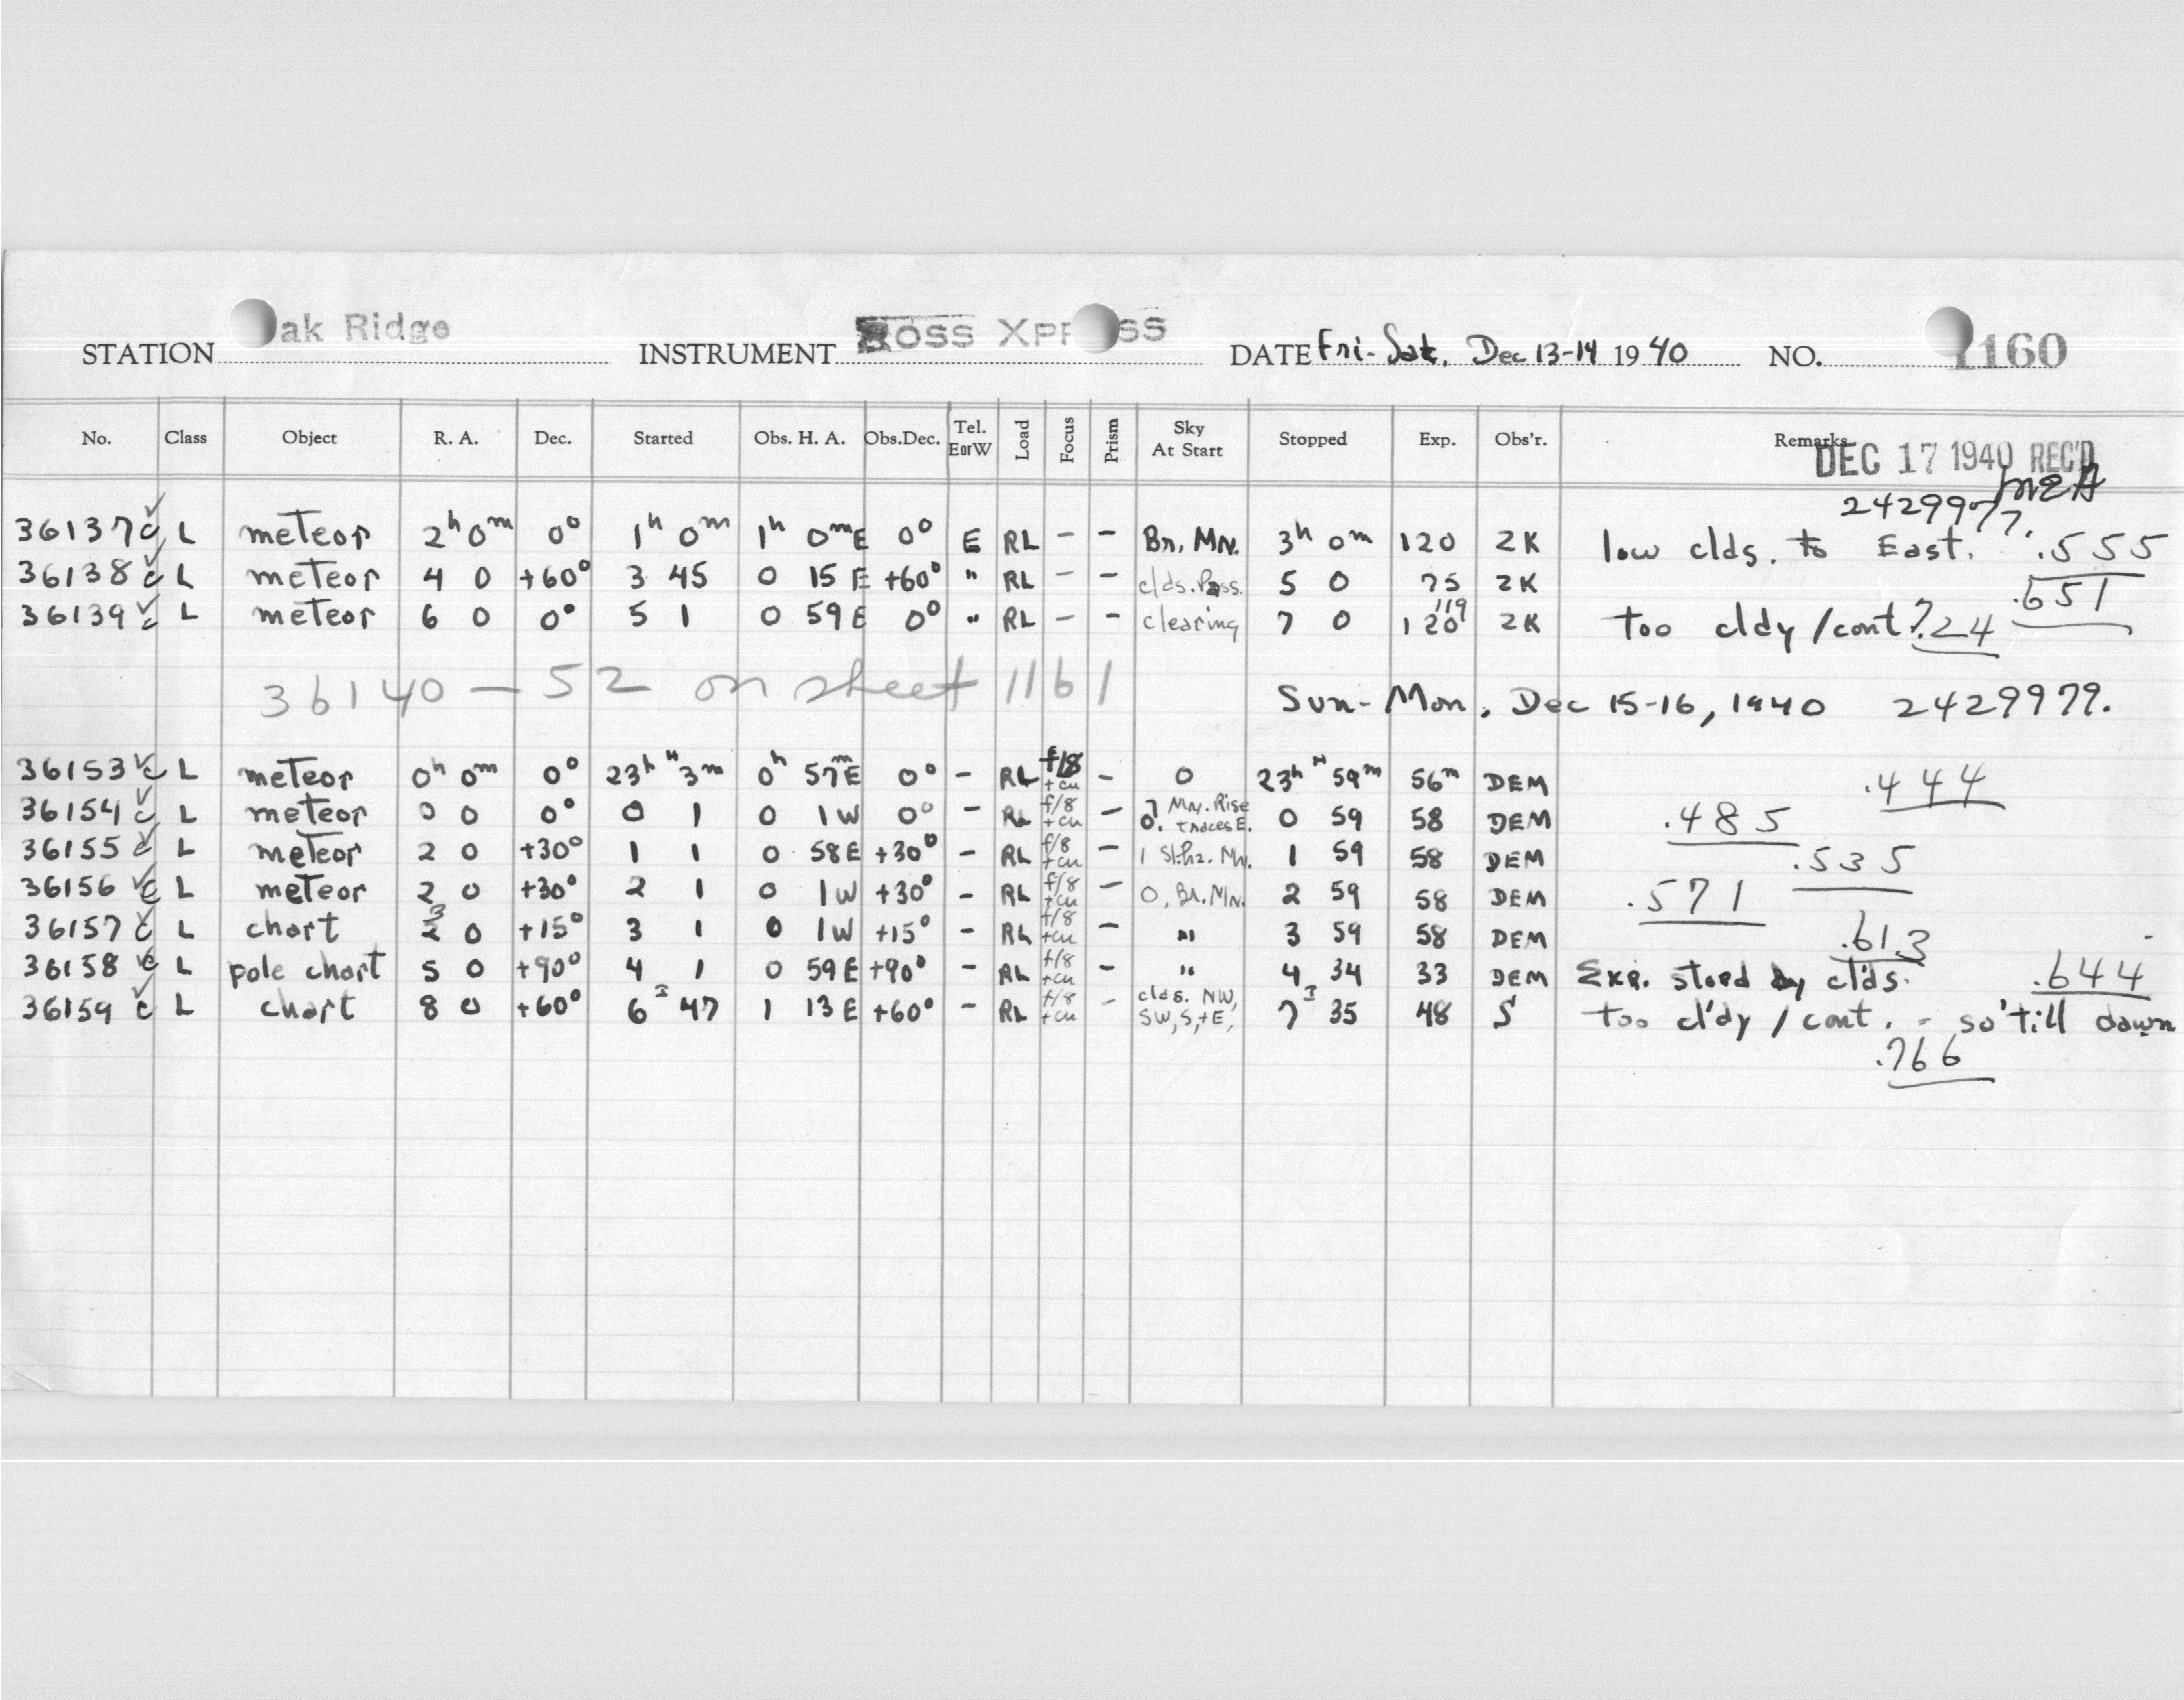 STATION Oak Ridge INSTRUMENT ROSS XPRESS DATE Fri-Sat. Dec 13-14 1940 NO. 1160
No. Class Object R. A. Dec. Started Obs. H. A. Obs.Dec. Tel. EorW Load Focus Prism Sky At Start Stopped Exp. Obs'r. Remarks
DEC 17 1940 REC'D
2429977.
36137 c L meteor 2h 0m 0° 1h 0m 1h 0m E 0° E RL - - Br. MN. 3h 0m 120 2K low clds. to East. .555
36138 c L meteor 4 0 +60° 3 45 0 15 E +60° " RL - - clds. Pass. 5 0 75 2K .651
36139 c L meteor 6 0 0° 5 1 0 59 E 0° " RL - - clearing 7 0 120 119 2K too cldy /cont .724
36140 - 52 on sheet 1161
Sun-Mon. Dec 15-16, 1940 2429979.
36153 c L meteor 0h 0m 0° 23h 3m 0h 57m E 0° - RL f/8 +cu - 0 23h 59m 56m DEM .444
36154 c L meteor 0 0 0° 0 1 0 1 W 0° - RL f/8 +cu - 0. MN. Rise traces E. 0 59 58 DEM .485
36155 c L meteor 2 0 +30° 1 1 0 58 E +30° - RL f/8 +cu - 1 Sl. hz. Mn. 1 59 58 DEM .535
36156 c L meteor 2 0 +30° 2 1 0 1 W +30° - RL f/8 +cu - 0, Br. MN. 2 59 58 DEM .571
36157 c L chart 3 0 +15° 3 1 0 1 W +15° - RL f/8 +cu - " 3 59 58 DEM .613
36158 c L pole chart 5 0 +90° 4 1 0 59 E +90° - RL f/8 +cu - " 4 34 33 DEM Exp. stopd by cl'ds. .644
36159 c L chart 8 0 +60° 6 47 1 13 E +60° - RL f/8 +cu - clds. NW, SW, S, +E, 7 35 48 S too cl'dy / cont. - so 'till dawn
.766